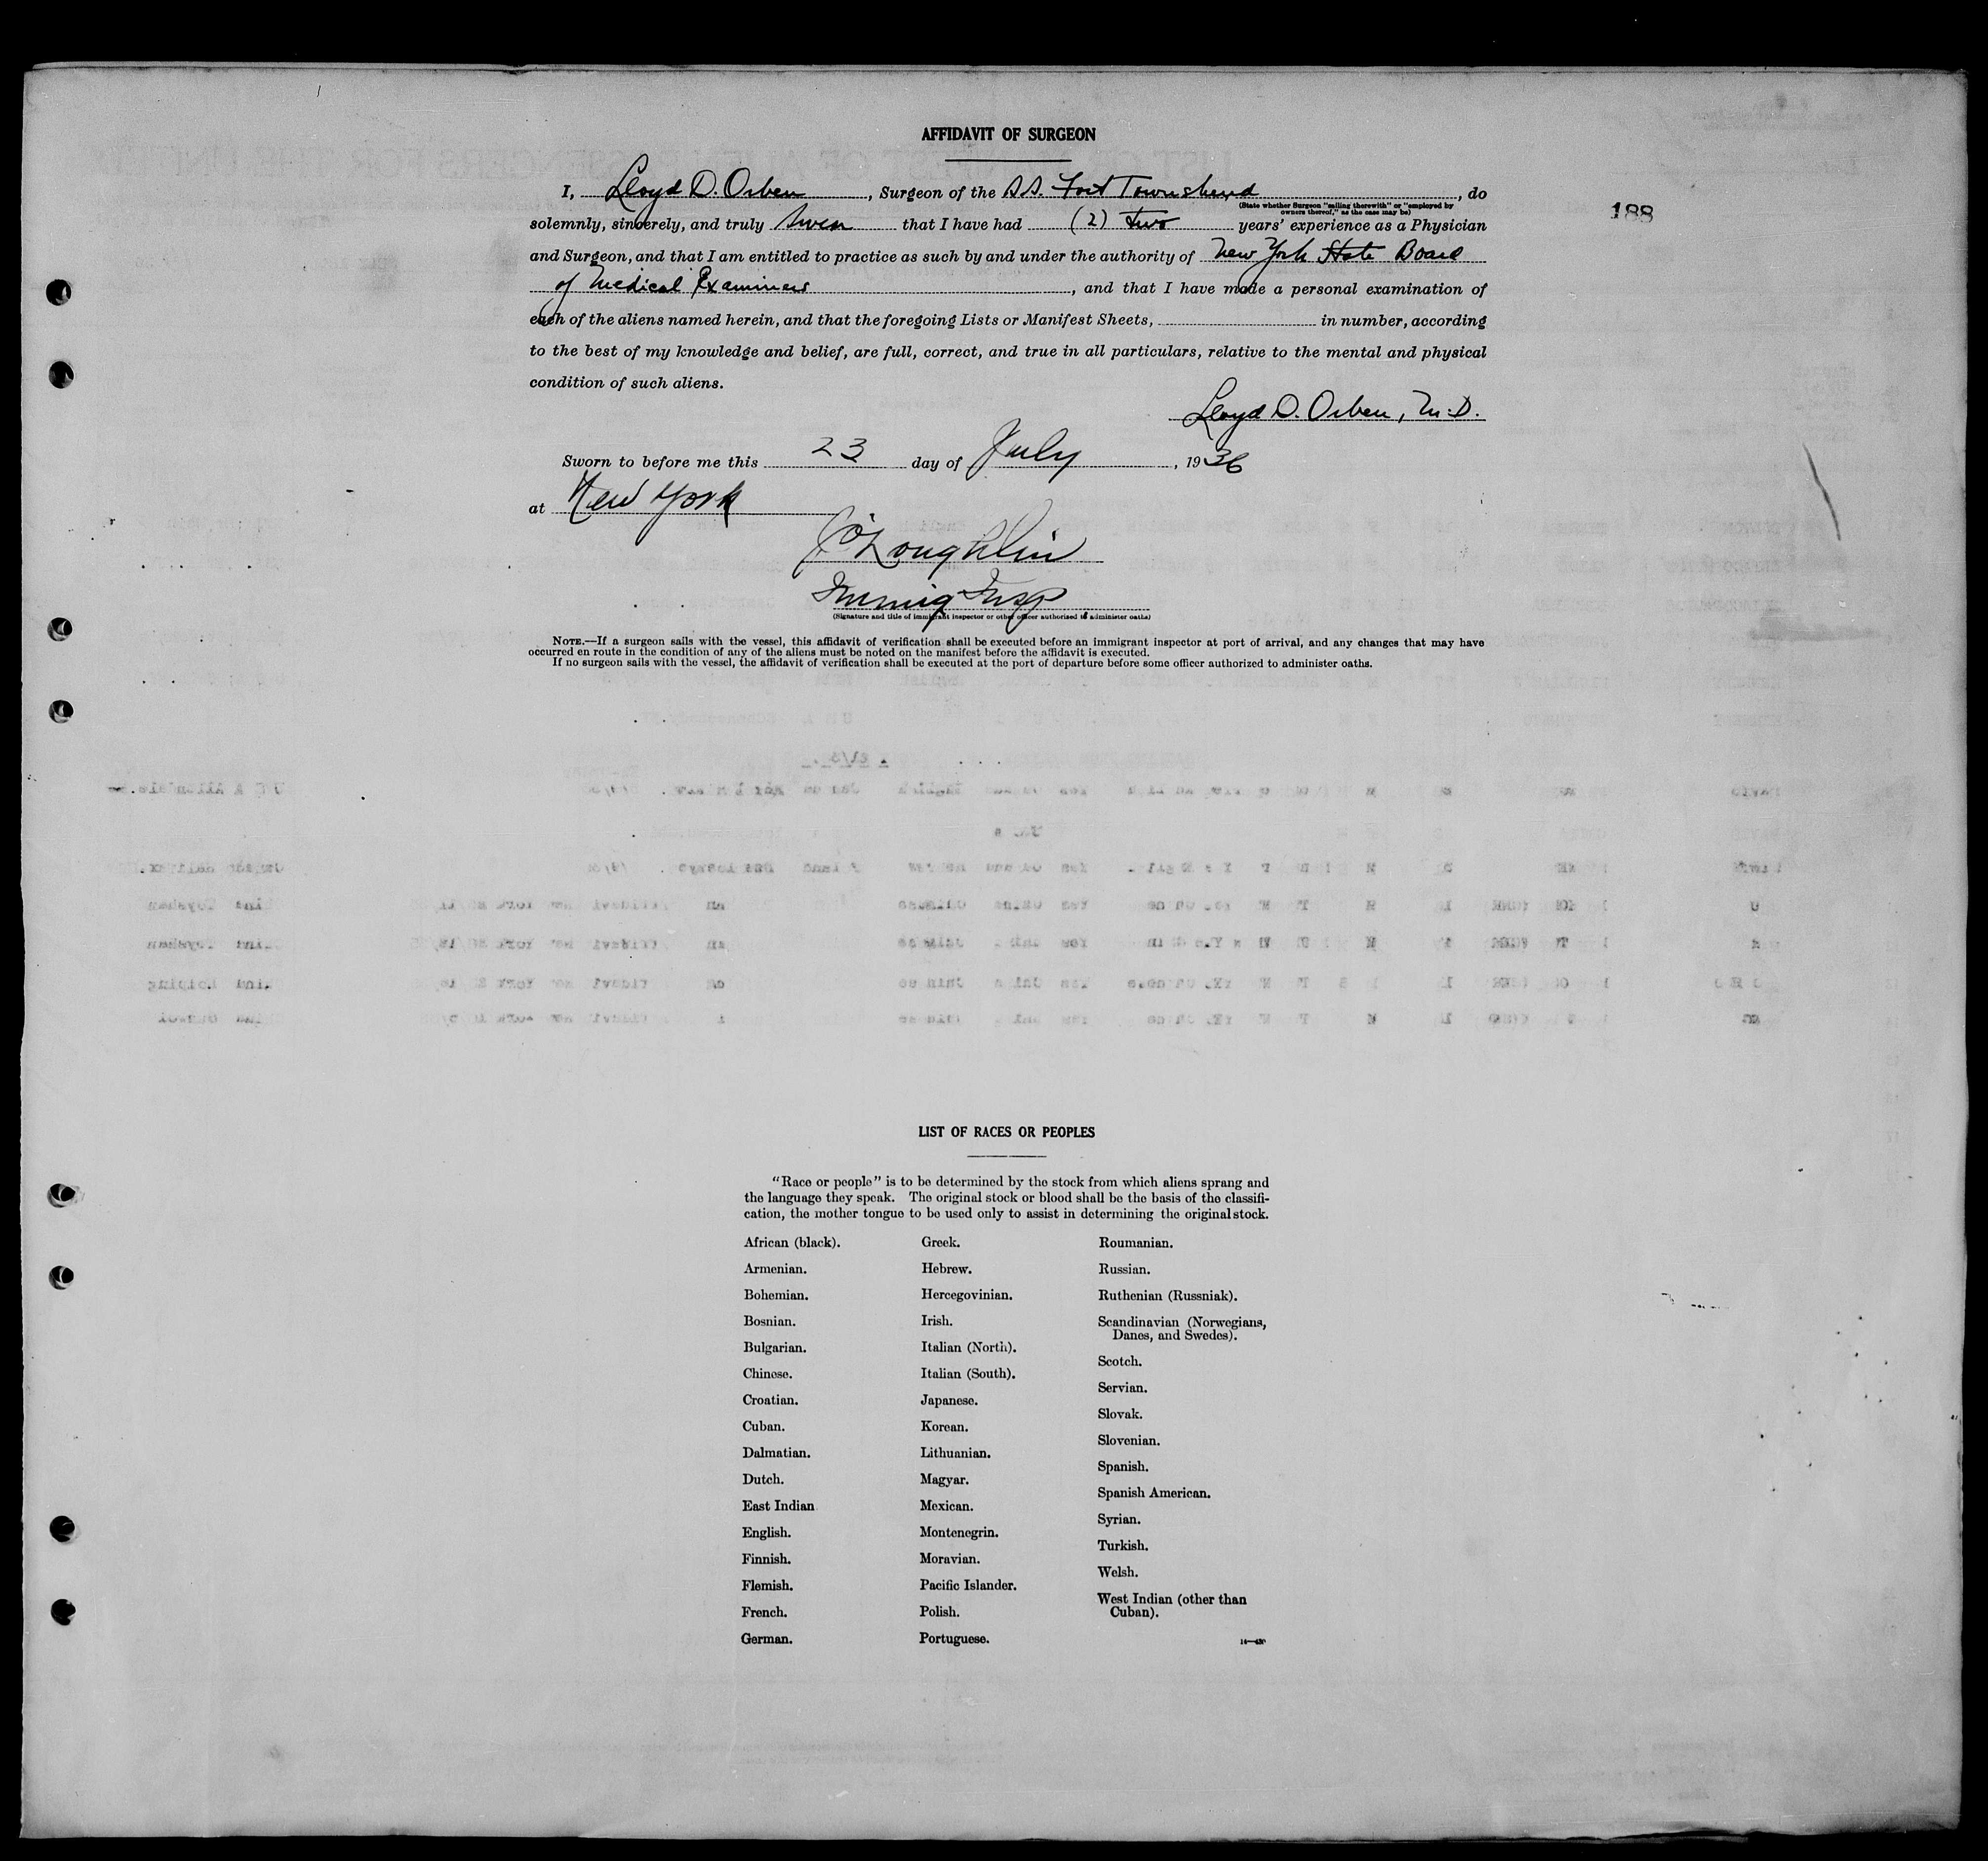 AFFIDAVIT OF SURGEON
I, Lloyd D. Orben, Surgeon of the S.S. Fort Townshend, do
(State whether Surgeon "sailing therewith" or "employed by
owners thereof," as the case may be)
188
solemnly, sincerely, and truly swear that I have had (2) two years' experience as a Physician
and Surgeon, and that I am entitled to practice as such by and under the authority of New York State Board
of Medical Examiners, and that I have made a personal examination of
each of the aliens named herein, and that the foregoing Lists or Manifest Sheets, in number, according
to the best of my knowledge and belief, are full, correct, and true in all particulars, relative to the mental and physical
condition of such aliens.
Lloyd D. Orben, M.D.
Sworn to before me this 23 day of July, 1936
at New York
O'Loughlin
Immig Insp
(Signature and title of immigrant inspector or other officer authorized to administer oaths)
NOTE.—If a surgeon sails with the vessel, this affidavit of verification shall be executed before an immigrant inspector at port of arrival, and any changes that may have
occurred en route in the condition of any of the aliens must be noted on the manifest before the affidavit is executed.
If no surgeon sails with the vessel, the affidavit of verification shall be executed at the port of departure before some officer authorized to administer oaths.
LIST OF RACES OR PEOPLES
"Race or people" is to be determined by the stock from which aliens sprang and
the language they speak. The original stock or blood shall be the basis of the classifi-
cation, the mother tongue to be used only to assist in determining the original stock.
African (black).
Armenian.
Bohemian.
Bosnian.
Bulgarian.
Chinese.
Croatian.
Cuban.
Dalmatian.
Dutch.
East Indian
English.
Finnish.
Flemish.
French.
German.
Greek.
Hebrew.
Hercegovinian.
Irish.
Italian (North).
Italian (South).
Japanese.
Korean.
Lithuanian.
Magyar.
Mexican.
Montenegrin.
Moravian.
Pacific Islander.
Polish.
Portuguese.
Roumanian.
Russian.
Ruthenian (Russniak).
Scandinavian (Norwegians,
Danes, and Swedes).
Scotch.
Servian.
Slovak.
Slovenian.
Spanish.
Spanish American.
Syrian.
Turkish.
Welsh.
West Indian (other than
Cuban).